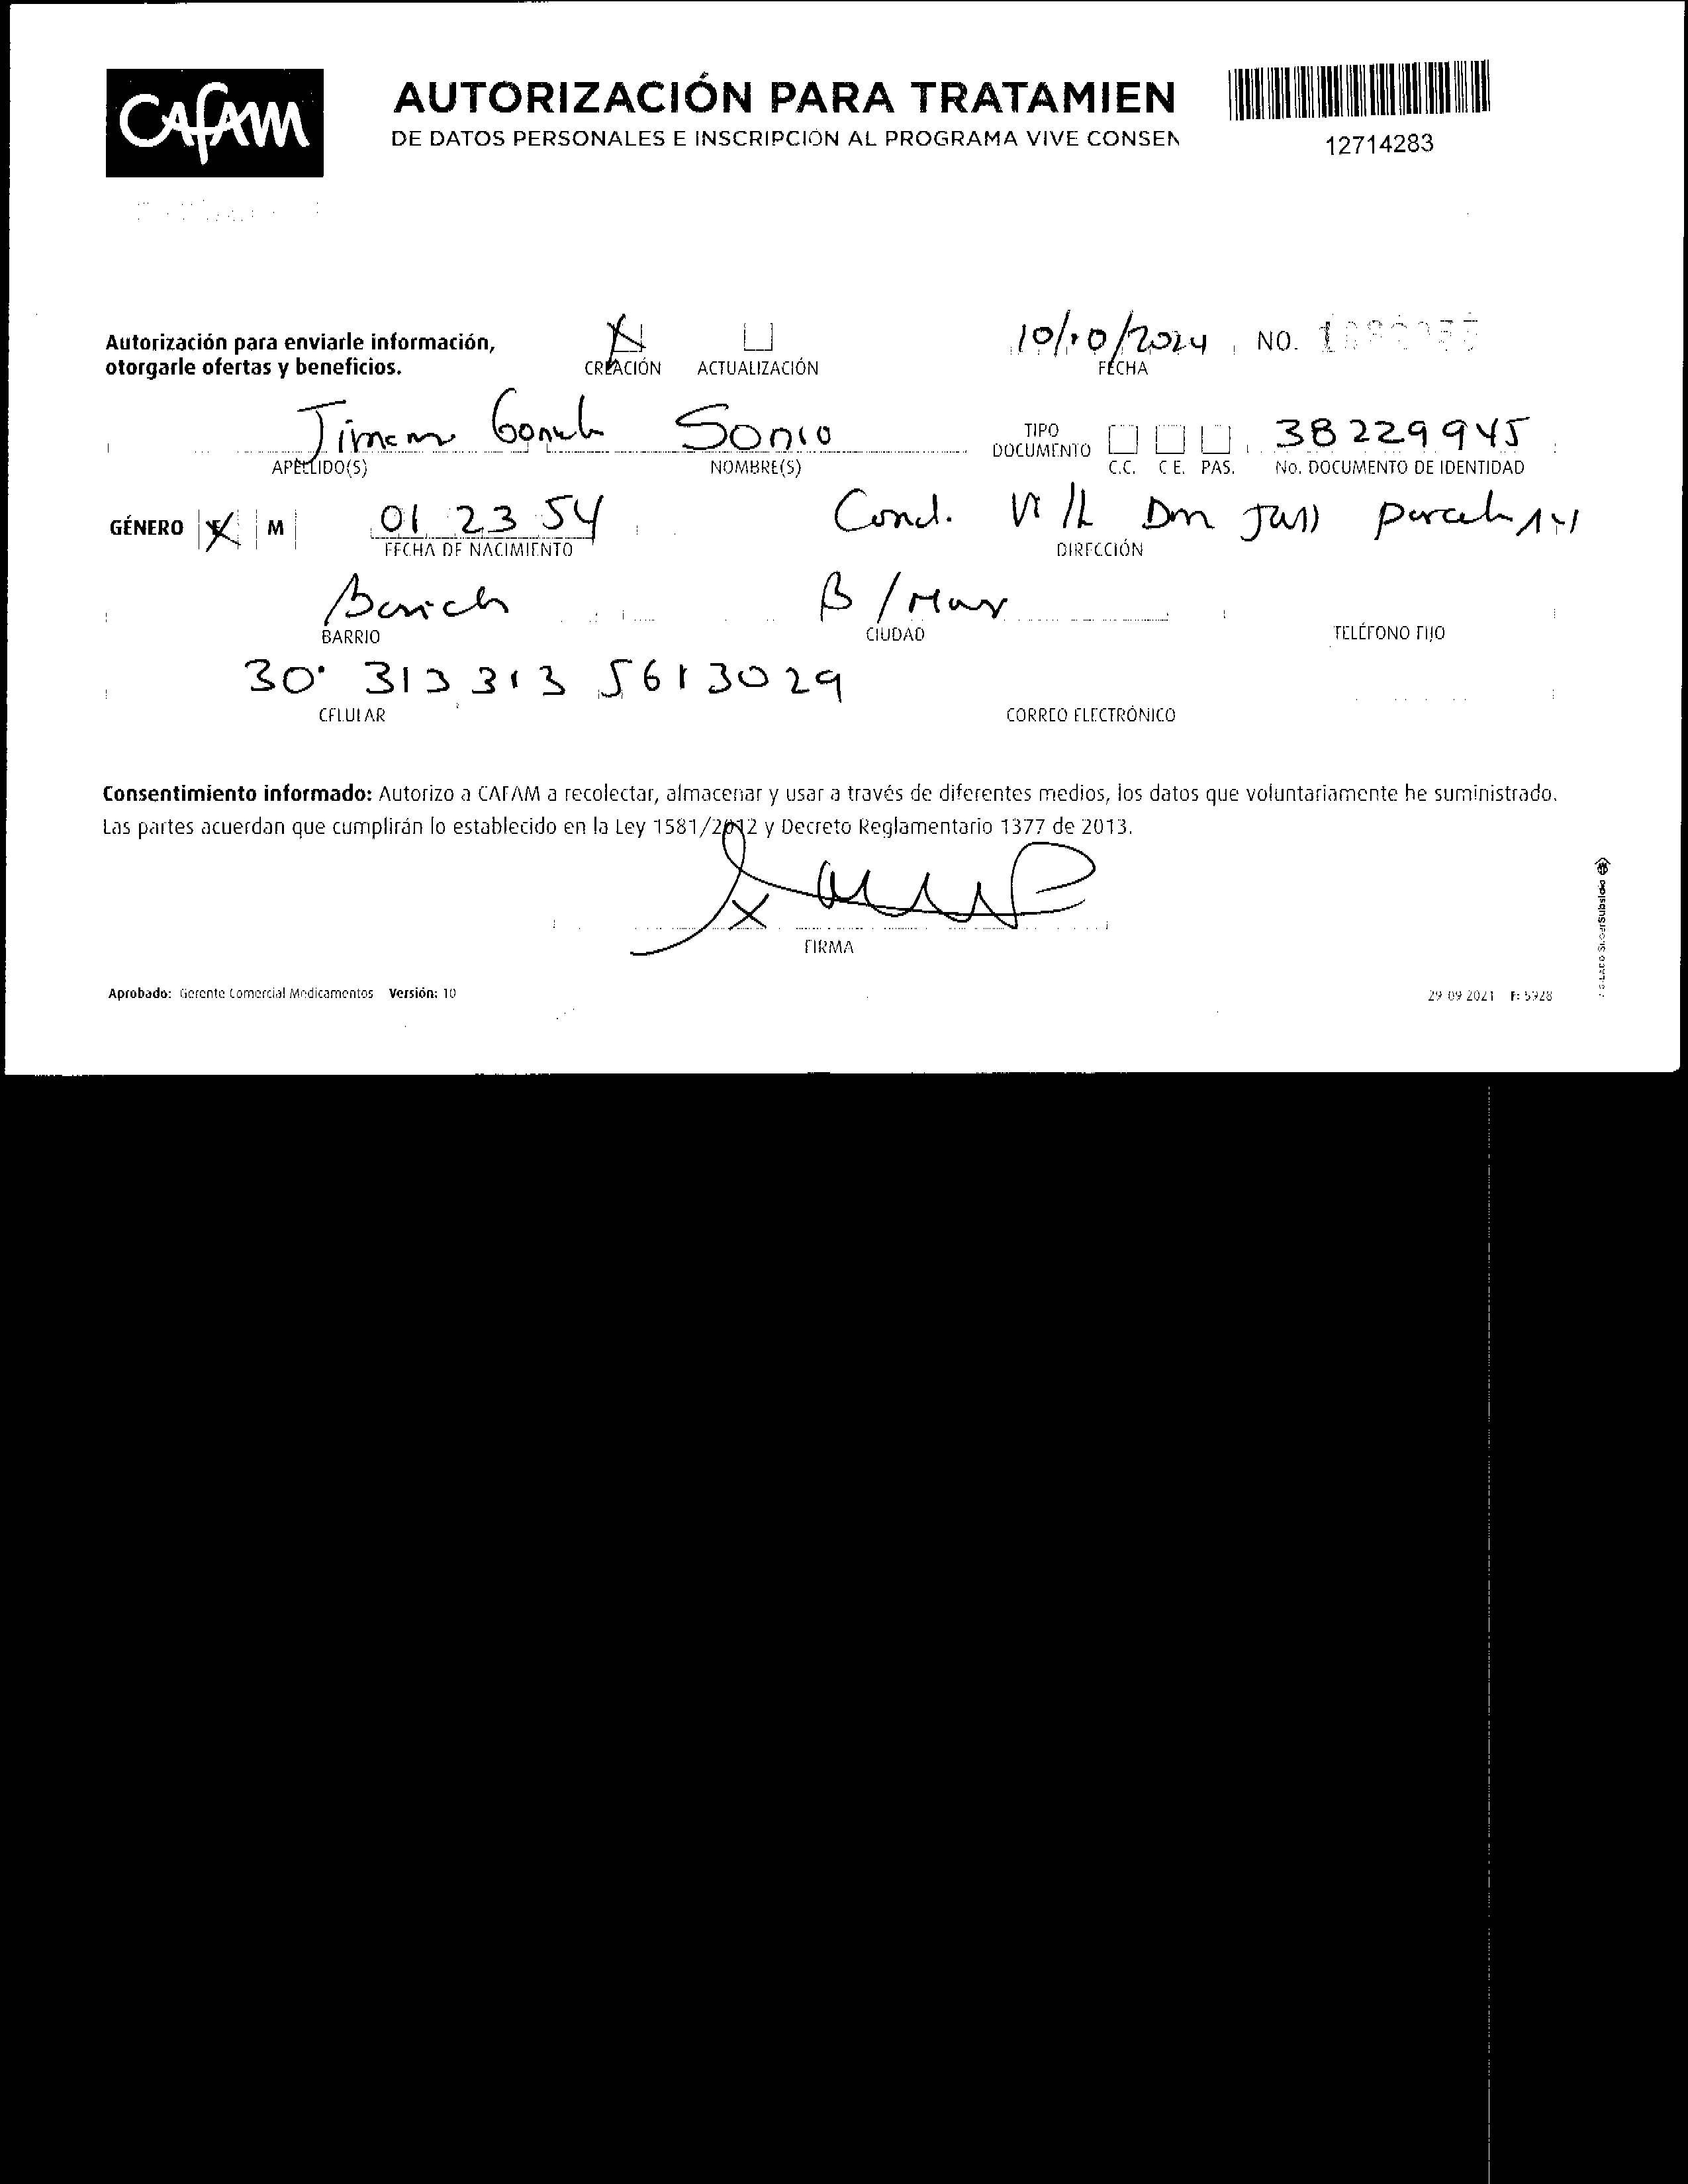 CAFAM
AUTORIZACIÓN PARA TRATAMIEN
DE DATOS PERSONALES E INSCRIPCIÓN AL PROGRAMA VIVE CONSEN
12714283
Autorización para enviarle información,
otorgarle ofertas y beneficios.
X
CREACIÓN ACTUALIZACIÓN
10/10/2024 NO.
FECHA
Sonia
APELLIDO(S) NOMBRE(S)
TIPO
DOCUMENTO
C.C. C E. PAS.
38229945
No. DOCUMENTO DE IDENTIDAD
GÉNERO X M
01 23 54
FECHA DE NACIMIENTO
Cond.
DIRECCIÓN
BARRIO
B/
CIUDAD
TELÉFONO FIJO
313 313 5613029
CELULAR
CORREO ELECTRÓNICO
Consentimiento informado: Autorizo a CAFAM a recolectar, almacenar y usar a través de diferentes medios, los datos que voluntariamente he suministrado.
Las partes acuerdan que cumplirán lo establecido en la Ley 1581/2012 y Decreto Reglamentario 1377 de 2013.
X
FIRMA
Aprobado: Gerente Comercial Medicamentos Versión: 10
29 09 2021 F: 5928
VIGILADO SuperSubsidio